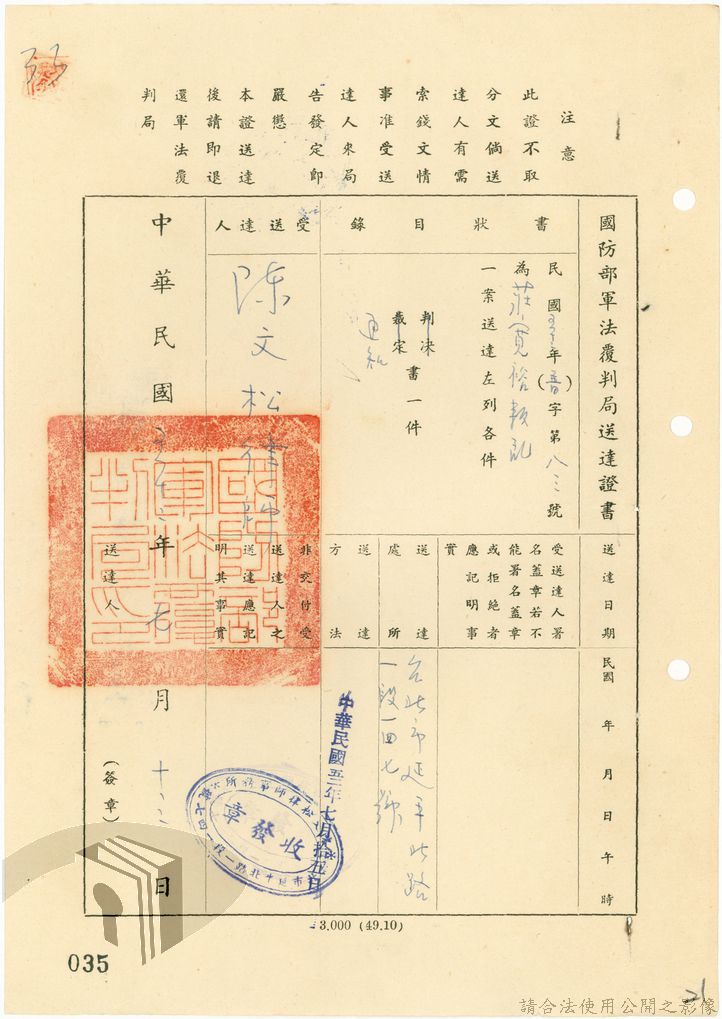 注意
此證不取
分文倘送
達人有需
索錢文情
事准受送
達人來局
告發定即
嚴懲
本證送達
後請即退
還軍法覆
判局
國防部軍法覆判局送達證書
書狀目錄
民國 年(普)字第八三號
為莊寬裕叛亂
一案送達左列各件
判決
裁定
書一件
通知
受送達人
陳文松律師
送達日期
民國 年 月 日 午 時
受送達人署
名蓋章若不
能署名蓋章
或拒絕者
應記明事
實
送達處所
台北市延平北路
一段一四七號
送達方法
非交付受
送達人之
送達應記
明其事實
中華民國五十三年七月十 日
送達人
(簽章)
國防部軍法覆判局印
中華民國五三年七月拾五日
松律師事務所
收發章
3.000 (49.10)
035
21
請合法使用公開之影像